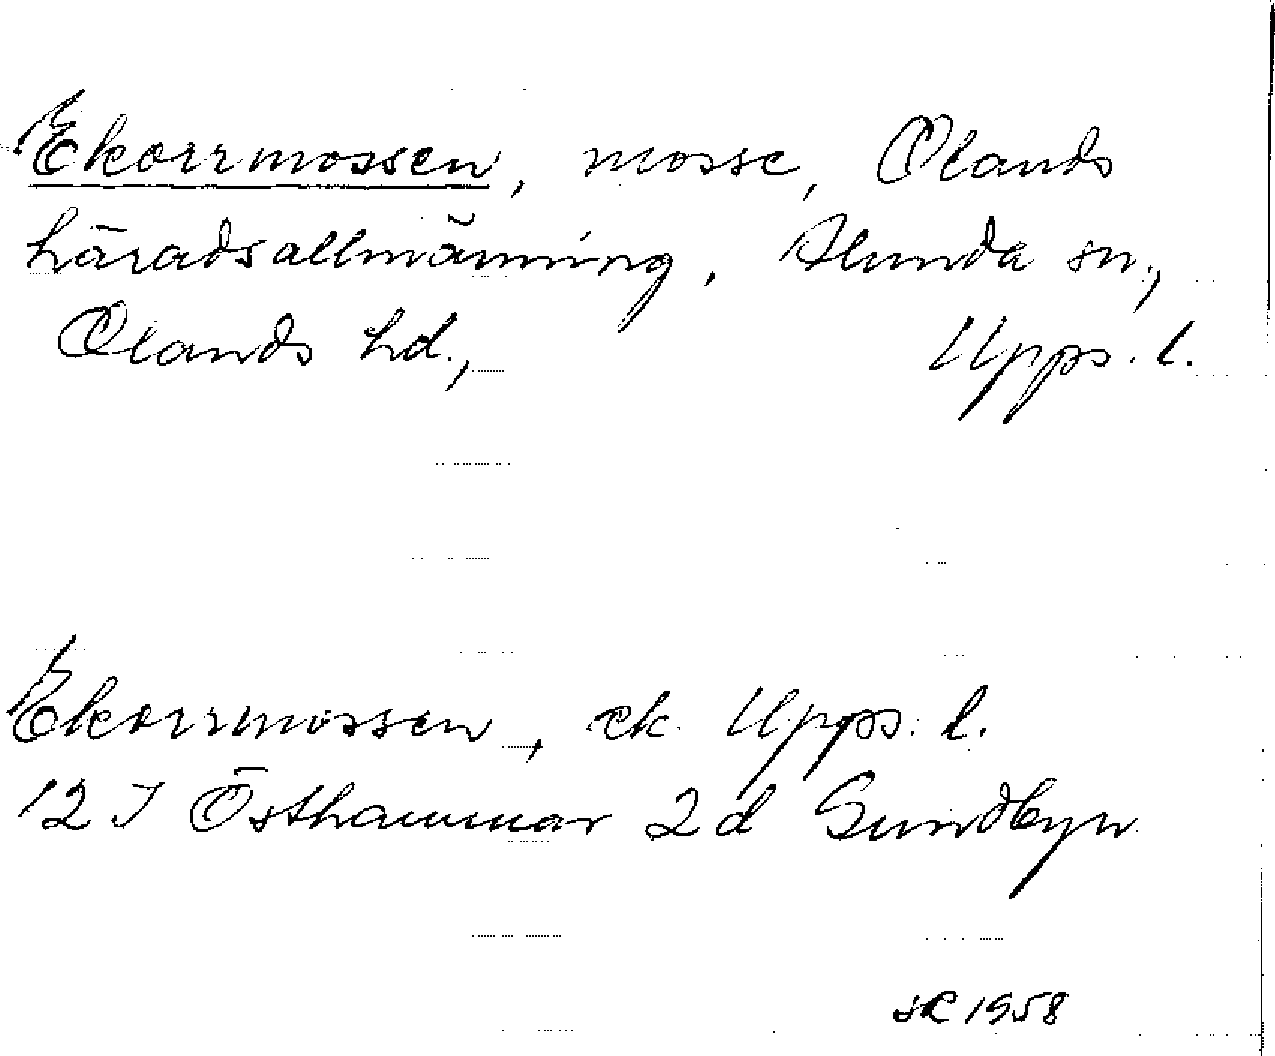 Ekorrmossen, mosse, Olands
häradsallmänning, Alunda sn,
Olands hd., Upps. l.
Ekorrmossen, ek. Upps. l.
12 I Östhammar 2d Sundbyn
1958